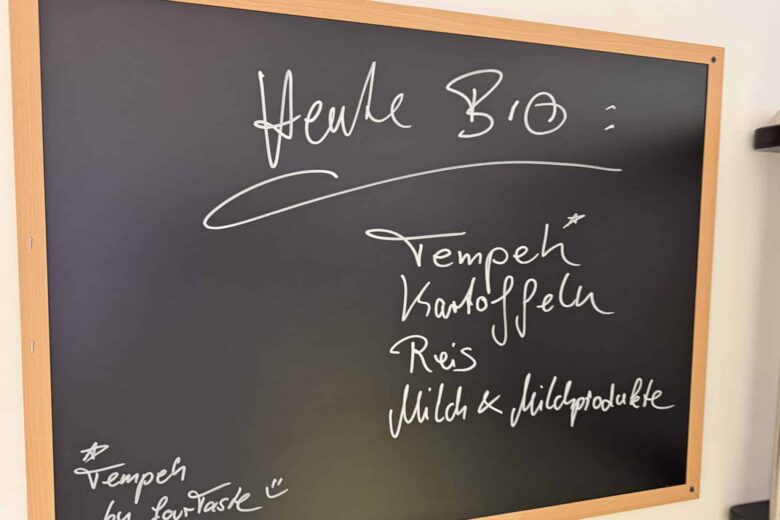 Heute BIO:
Tempeh*
Kartoffeln
Reis
Milch & Milchprodukte
*
Tempeh
by
Taste